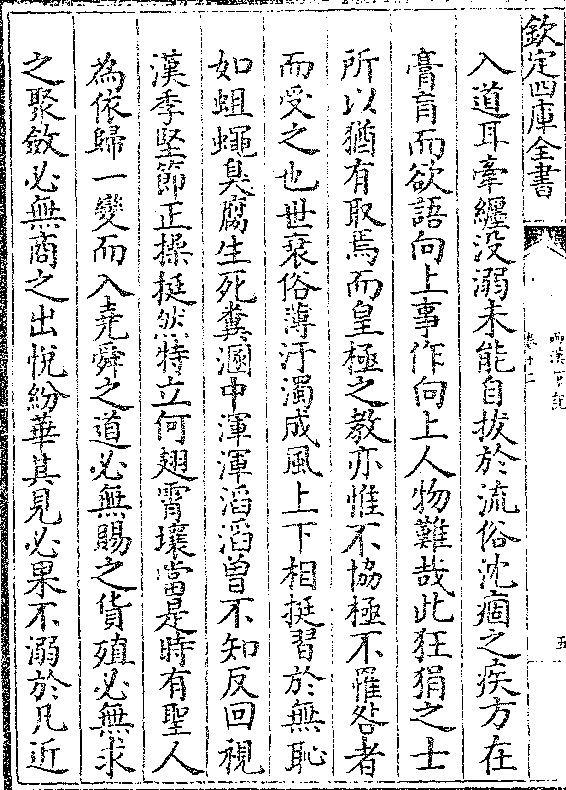 欽定四庫全書
卷十二
五
入道耳牽纏没溺未能自拔於流俗沈痼之疾方在
膏肓而欲語向上事作向上人物難哉此狂狷之士
所以猶有取焉而皇極之教亦惟不協極不罹咎者
而受之也世衰俗薄汙濁成風上下相挺習於無恥
如蛆蠅臭腐生死糞溷中渾渾滔滔曽不知反回視
漢季堅節正操挺然特立何翅霄壤當是時有聖人
為依歸一變而入堯舜之道必無賜之貨殖必無求
之聚斂必無商之出悅紛華其見必果不溺於凡近